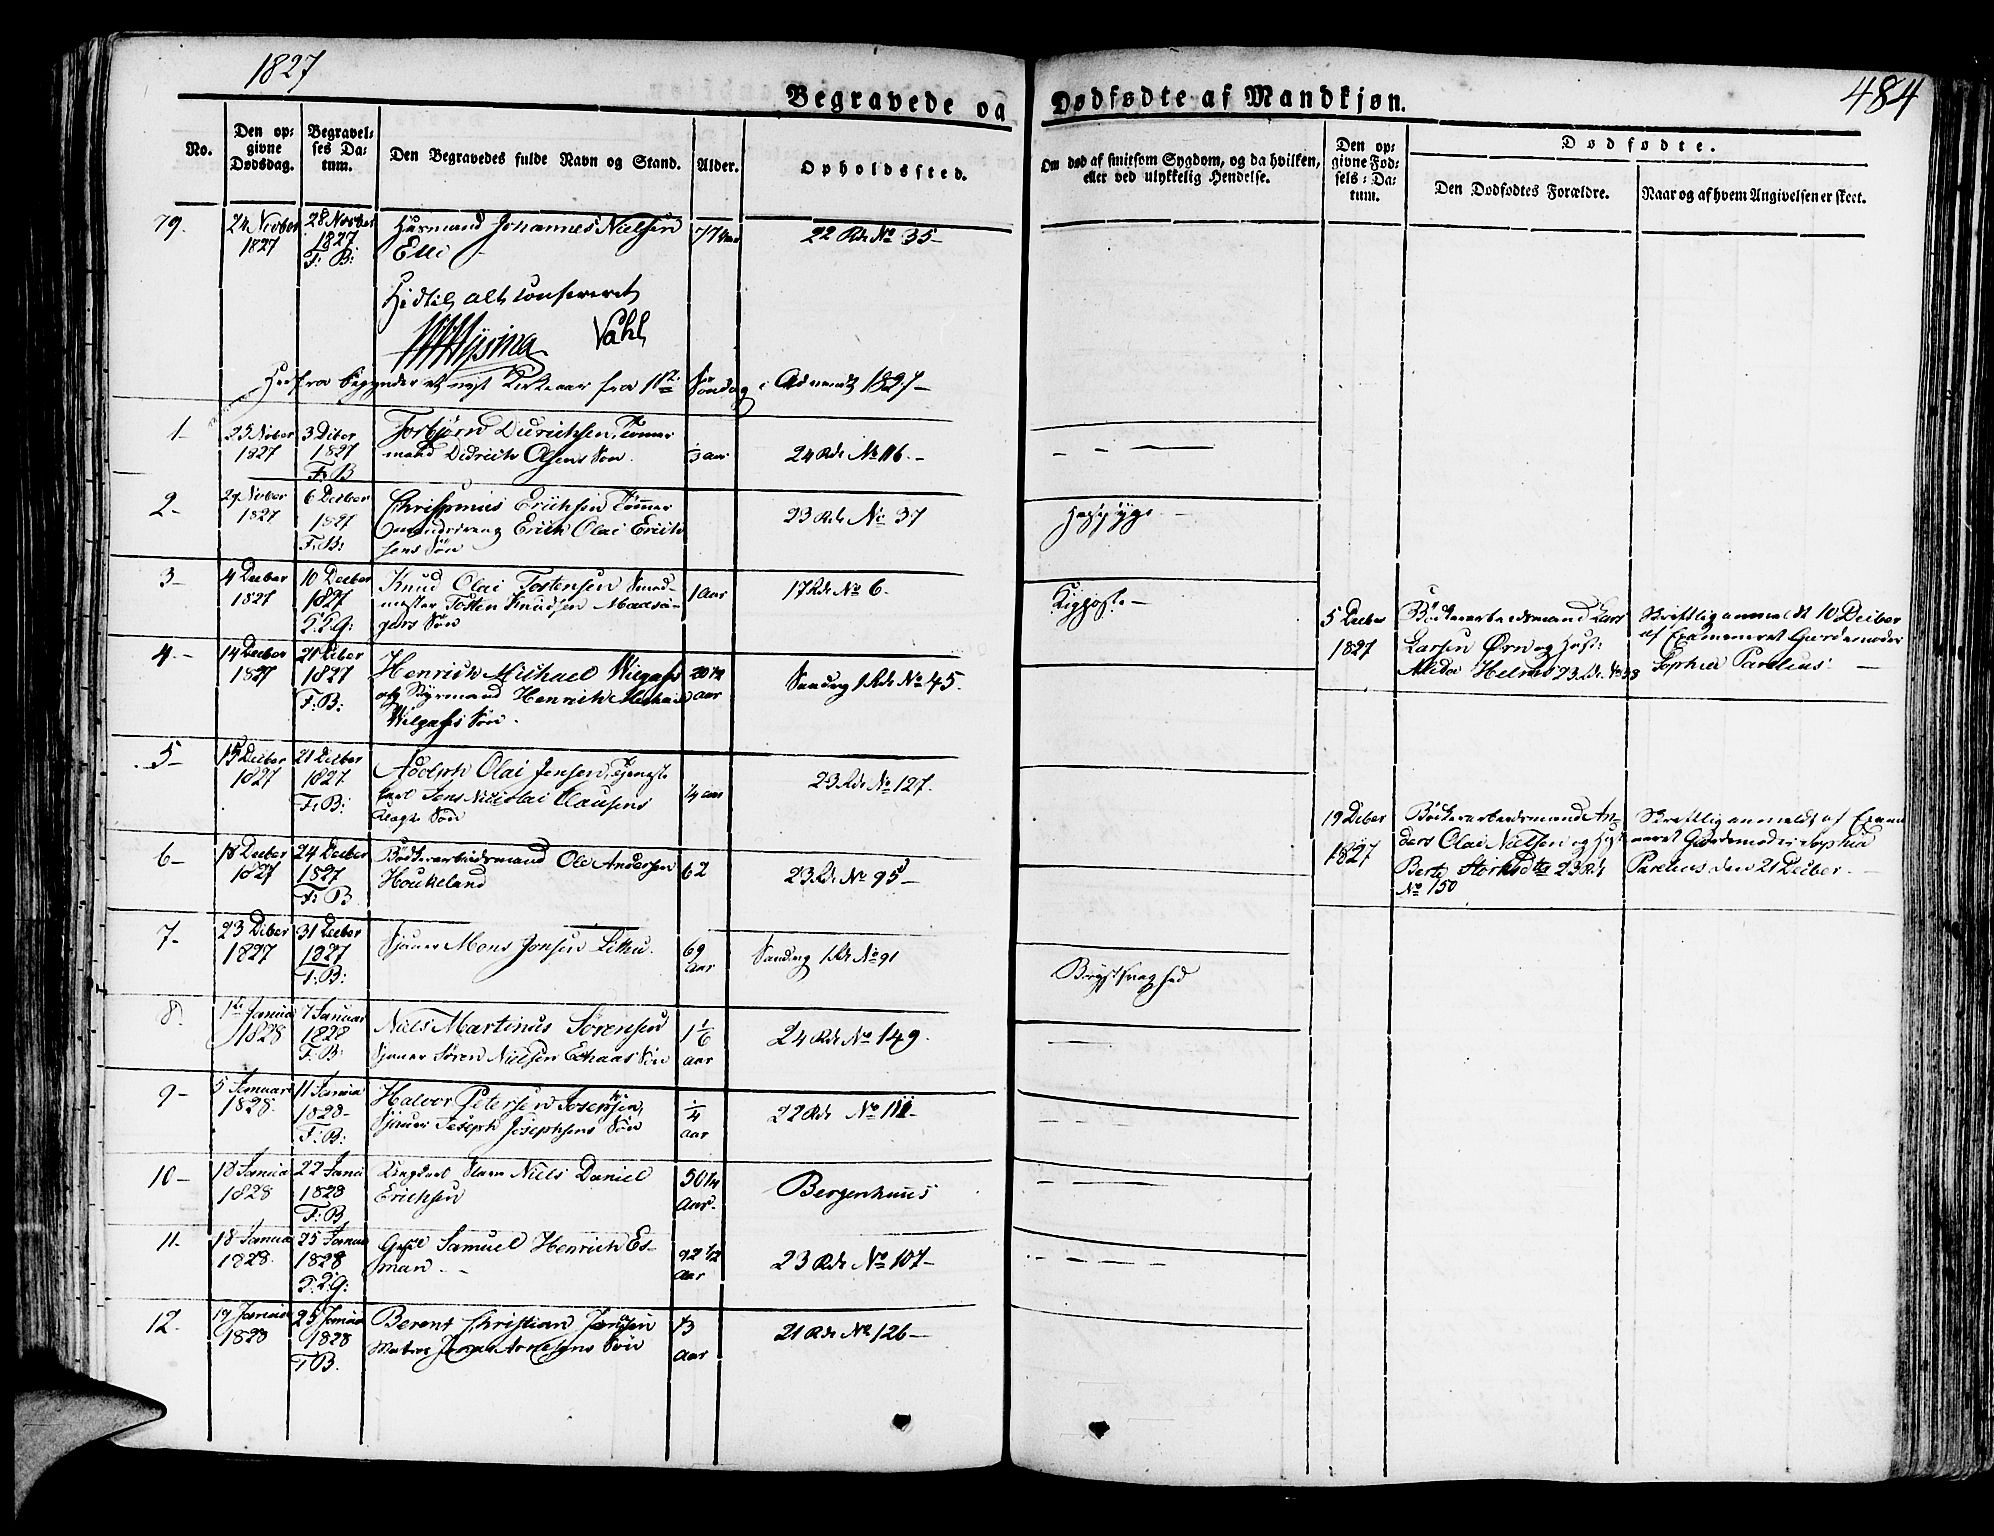 1827
484
Begravede og Dødfødte af Mandkjøn.
No.
Den op=
givne
Dødsdag.
Begravel=
ses Da=
tum.
Den Begravedes fulde Navn og Stand.
Alder.
Opholdssted.
Om død af smitsom Sygdom, og da hvilken,
eller ved ulykkelig Hendelse.
Den op=
givne Fød=
sels=Da=
tum.
Dødfødte.
Den Dødfødtes Forældre.
Naar og af hvem Angivelsen er skeet.
79.
24 Novber
1827
28 Novber
1827
F: B:
Huusmand Johannes Nielsen
77 Aar
22 Rde No 35-
Hidtil alt confereret
Vahl
Herfra begynder et nyt Kirkeaar fra 1ste Søndag i Advendt 1827-
1-
25 Nober
1827
3 Dcber
1827
F: B
Torbjørn Didrichsen, Tømmer
mand Didrich Olsens Søn.
3 aar
24 Rde No 116.-
2-
29 Nober
1827
6 Decber
1827
F: B:
Erichsen Tømmer
Erich Olai Erich
sens Søn
23 Rde No 37
3-
4 Decber
1827
10 Decber
1827
Knud Olai Tostensen
mester Tosten Knudsen
Søn
1 aar
17 Rde No 6.
5 Decber
1827
Bødkerarbeidsmand Lars
Larsen Ørn og Hust:
Helmes 23 Rde No 38
Skriftlig anmeldt 10 Decber
af Examineret Gjordemoder
Sophia Parelius.
4-
14 Decber
1827
21 Dcber
1827
F: B:
Henrich Michael Wilgahs
Styrmand Henrich Michael
Wilgahs Søn.
aar
Sandvig 1 Rde No 45.
5-
15 Decber
1827
21 Decber
1827
F: B:
Adolph Olai Jensen, Tjeneste
karl Jens Nicolai Clausens
Søn
1/4 aar
23 Rde No 127.
19 Dcber
1827
Bødkerarbeidsmand An-
ders Olai Nielsen og Hust
Berte 23 Rde
No 150
Skriftlig anmeldt af Exami
neret Gjordemoder Sophia
Parelius den 21 Decber.
6-
18 Decber
1827
24 Decber
1827
F: B
Bødkerarbeidsmand Ole Andersen
Houkeland
62
23 Rde No 95-
7-
23 Dcber
1827
31 Decber
1827
F: B:
Sjouer Mons Jonsen
69
aar
Sandvig 1 Rde No 91
Brystsvaghed
8.
1ste Januar
1828
7 Januar
1828
F: B:
Niels Martinus Sørensen
Sjouer Søren Nielsen Søn
1 1/6
aar
24 Rde No 149.
9-
5 Januari
1828.
11 Janua
1828-
F: B:
Halvor Petersen
Sjouer Joseph Josephsens Søn
1/4
aar
22 Rde No 111-
10-
18 Janua
1828
22 Janu
1828
F: B
Slave Niels Daniel
Erichsen
50 1/4
Aar.
Bergenhuus
11.-
18 Janua
1828.
25 Janua
1828
Samuel Henrich Es-
man
92 1/2
aar
23 Rde No 107-
12.
19 Januar
1828
25 Januar
1828
F B.
Berent Christian
Matros Søn
13
aar
21 Rde No 126-